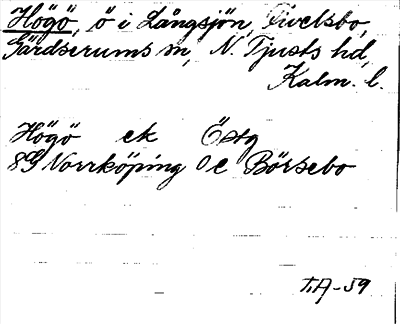 Högö, ö i Långsjön, Tivelsbo,
Gärdserums sn, N. Tjusts hd,
Kalm. l.
Högö ek Östg
8G Norrköping 0e Börsebo
T.A-59